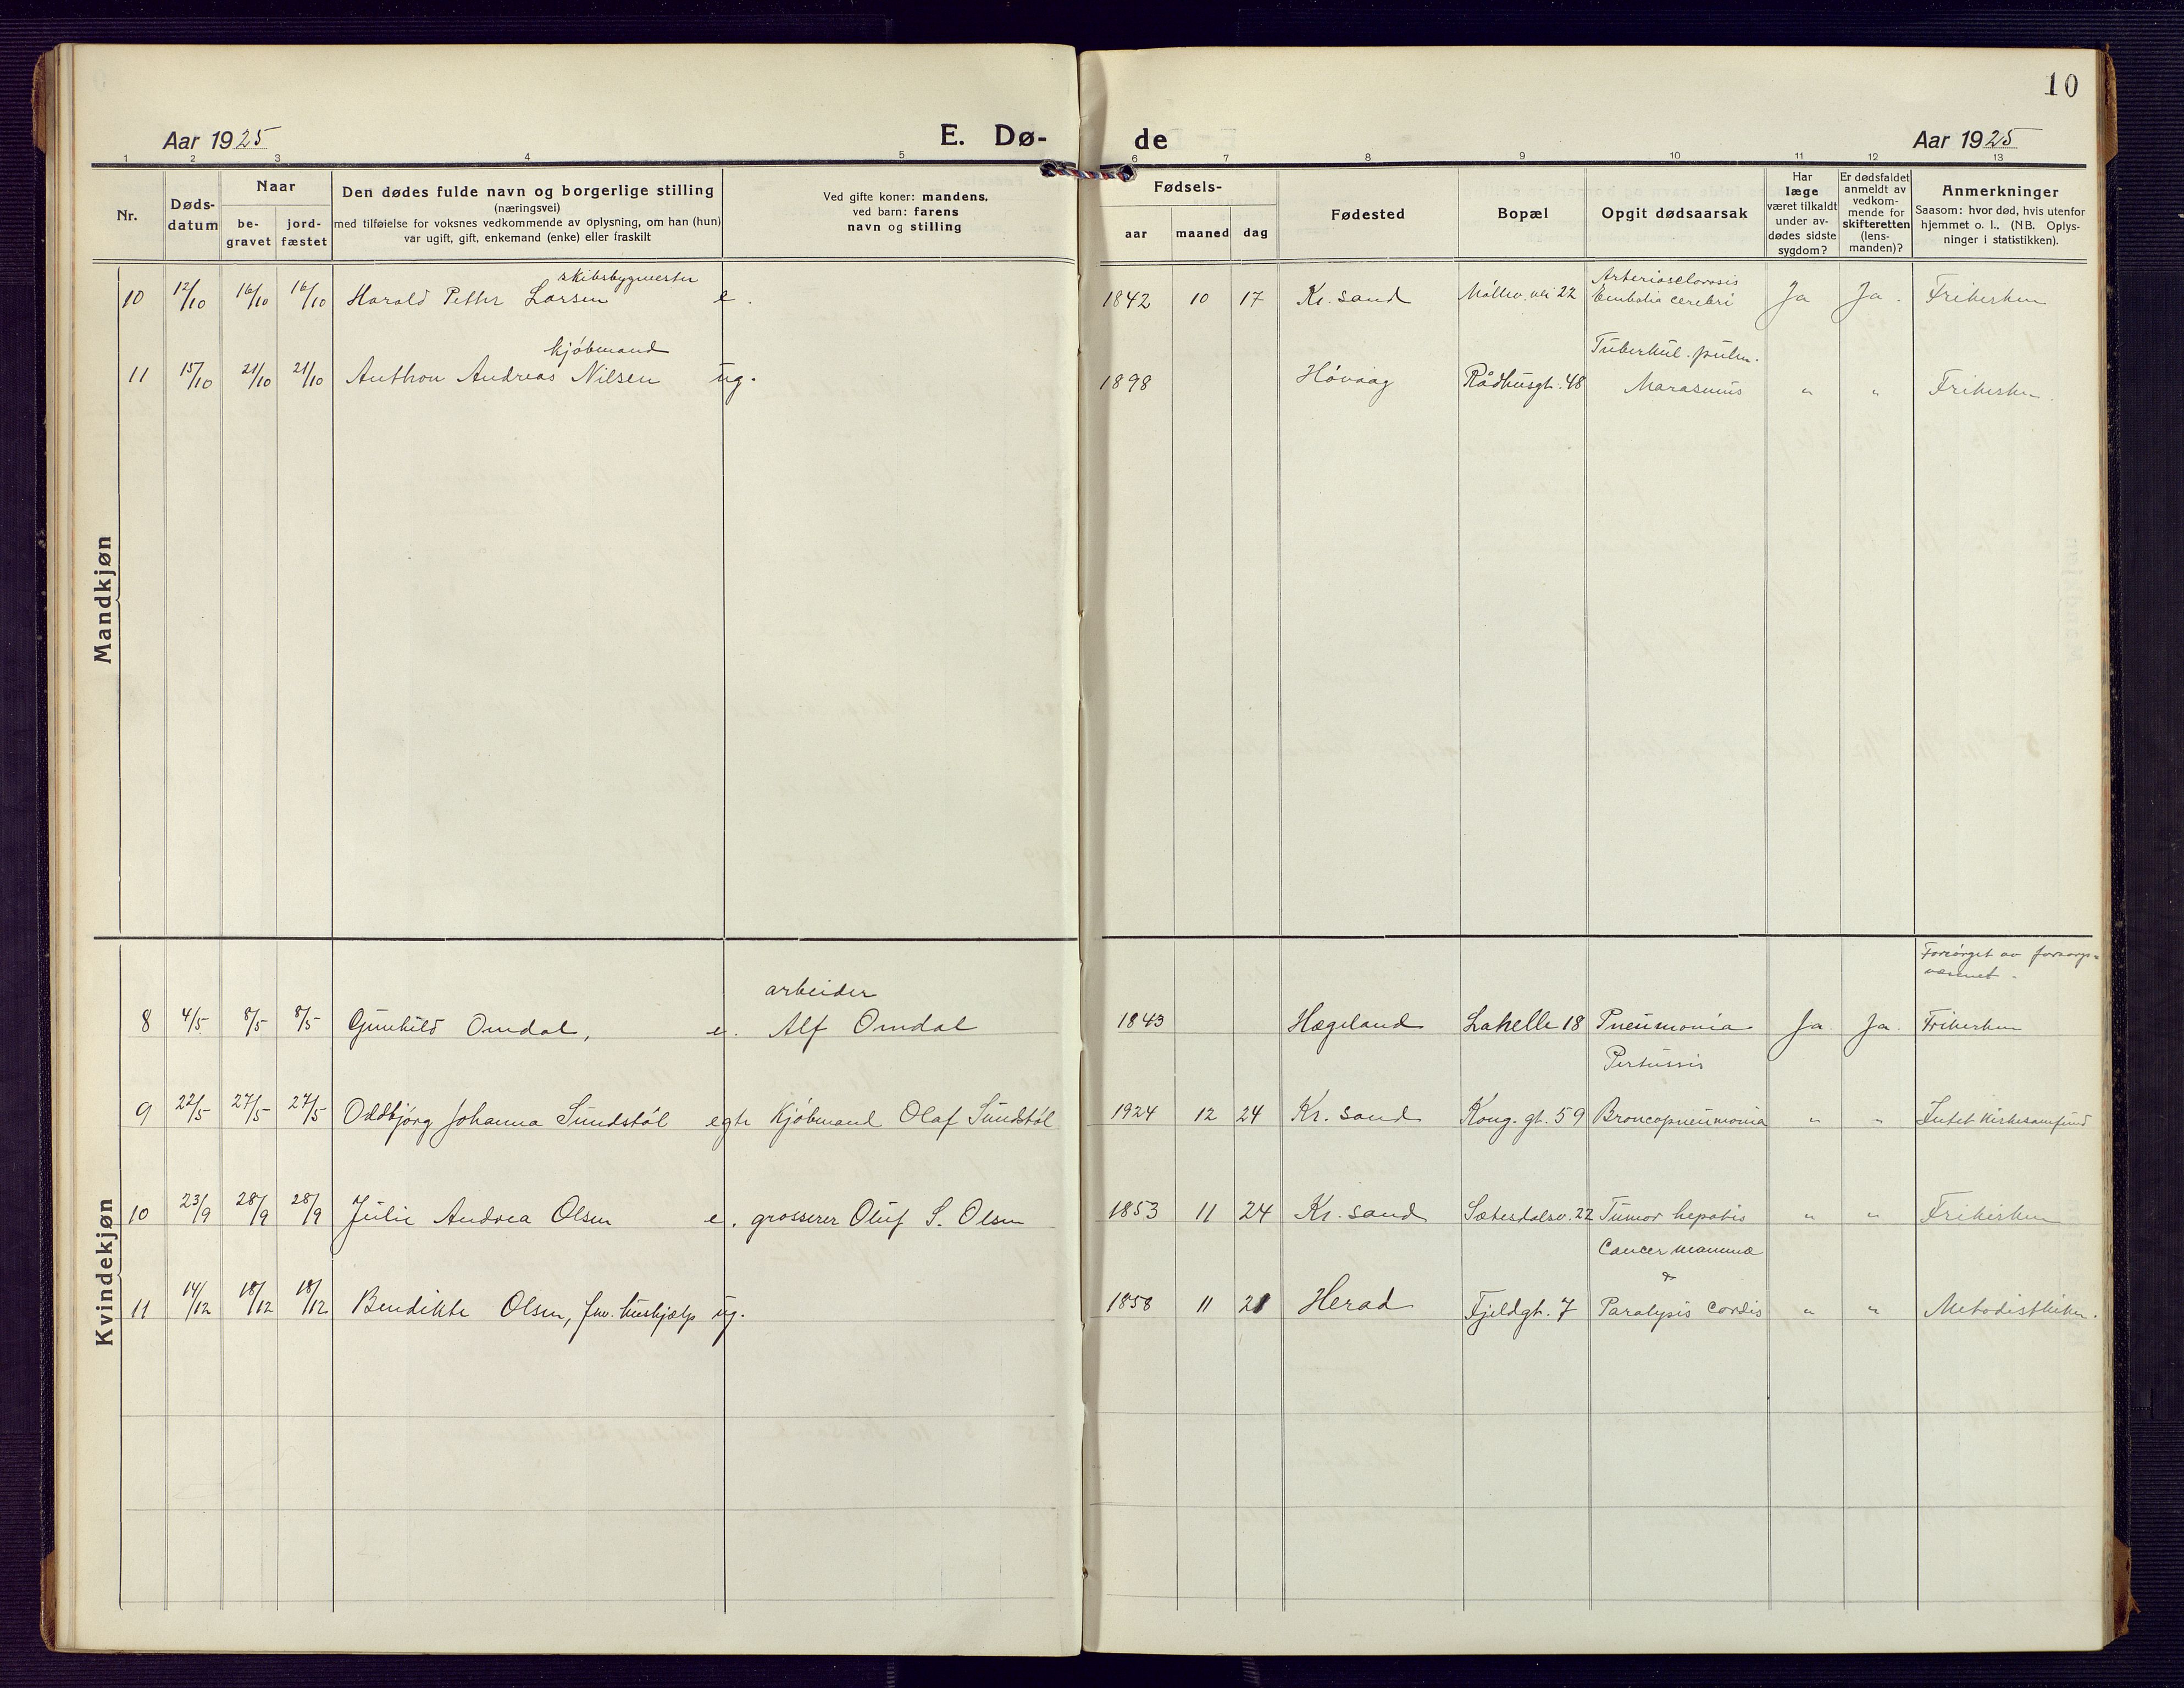 10
Aar 1925 E. Dø- de Aar 1925
1 2 3 4 5 6 7 8 9 10 11 12 13
Nr.
Døds-
datum
Naar
be-
gravet
jord-
fæstet
Den dødes fulde navn og borgerlige stilling
(næringsvei)
med tilføielse for voksnes vedkommende av oplysning, om han (hun)
var ugift, gift, enkemand (enke) eller fraskilt
Ved gifte koner: mandens,
ved barn: farens
navn og stilling
Fødsels-
aar maaned dag
Fødested
Bopæl
Opgit dødsaarsak
Har
læge
været tilkaldt
under av-
dødes sidste
sygdom?
Er dødsfaldet
anmeldt av
vedkom-
mende for
skifteretten
(lens-
manden)?
Anmerkninger
Saasom: hvor død, hvis utenfor
hjemmet o. l., (NB. Oplys-
ninger i statistikken).
Mandkjøn
skibsbygmester Arteriosclerosis
10 12/10 16/10 16/10 Harald Petter Larsen e. 1842 10 17 Kr. sand Møllev. vei 22 Embolia cerebri Ja Ja. Frikirken
kjøbmand Tuberkul. pulm.
11 15/10 21/10 21/10 Anthon Andreas Nilsen ug. 1898 Høvaag Rådhusgt. 48 Marasmus " " Frikirken.
Kvindekjøn
Forsørget av forsorgs-
væsenet.
arbeider
8 4/5 8/5 8/5 Gunhild Omdal, e. Alf Omdal 1843 Hægeland Lahelle 18 Pneumonia Ja. Ja. Frikirken
Pertussis
9 22/5 27/5 27/5 Oddbjørg Johanna Sundstøl egte Kjøbmand Olaf Sundstøl 1924 12 24 Kr. sand Kong. gt. 59 Broncopneumonia " " Intet kirkesamfund
10 23/9 28/9 28/9 Julie Andrea Olsen e. grosserer Oluf S. Olsen 1853 11 24 Kr. sand Sætesdalsv. 22 Tumor hepatis " " Frikirken
Cancer mammæ
&
11 14/12 18/12 18/12 Bendikte Olsen, fhv. hushjælp ug. 1858 11 21 Herad Fjeldgt. 7 Paralysis cordis " " Metodistkirken.